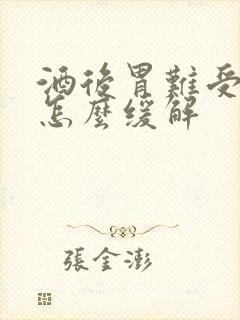 酒後胃難受
怎麼缓解
張金澎